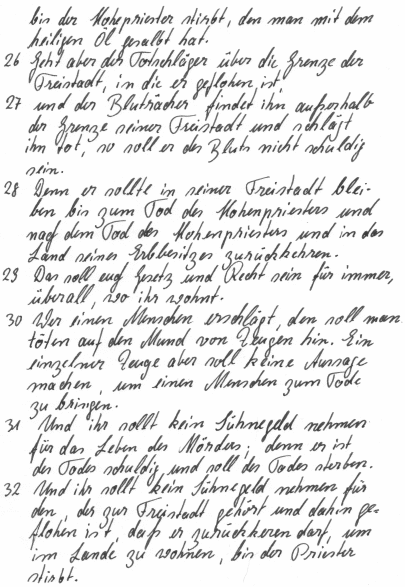 bis der Hohepriester stirbt, den man mit dem
heiligen Öl gesalbt hat.
26 Geht aber der Totschläger über die Grenze der
Freistadt, in die er geflohen ist,
27 und der Bluträcher findet ihn außerhalb
der Grenze seiner Freistadt und schlägt
ihn tot, so soll er des Bluts nicht schuldig
sein.
28 Denn er sollte in seiner Freistadt blei-
ben bis zum Tod des Hohenpriesters und
nach dem Tod des Hohenpriesters und in das
Land seines Erbbesitzes zurückkehren.
29 Das soll euch Gesetz und Recht sein für immer,
überall, wo ihr wohnt.
30 Wer einen Menschen erschlägt, den soll man
töten auf den Mund von Zeugen hin. Ein
einzelner Zeuge aber soll keine Aussage
machen, um einen Menschen zum Tode
zu bringen.
31 Und ihr sollt kein Sühnegeld nehmen
für das Leben des Mörders; denn er ist
des Todes schuldig und soll des Todes sterben.
32 Und ihr sollt kein Sühnegeld nehmen für
den, der zur Freistadt gehört und dahin ge-
flohen ist, daß er zurückkeren darf, um
im Lande zu wohnen, bis der Priester
stirbt.